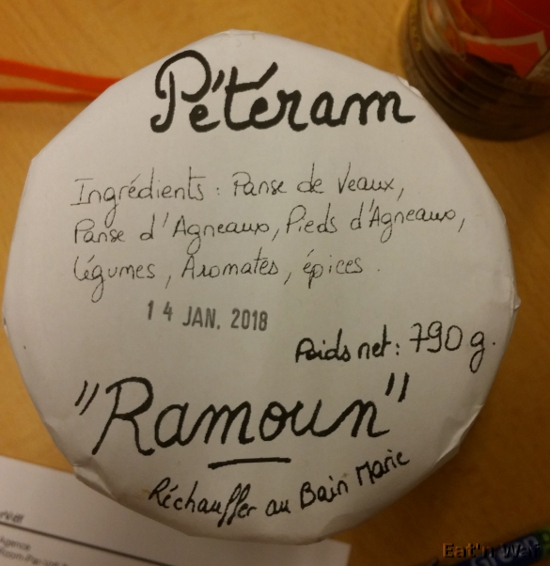 Pétéram
Ingrédients : Panse de Veaux,
Panse d'Agneaux, Pieds d'Agneaux,
légumes, Aromates, épices.
14 JAN. 2018
Poids net : 790 g.
"Ramoun"
Réchauffer au Bain Marie
Agence
Eat'n